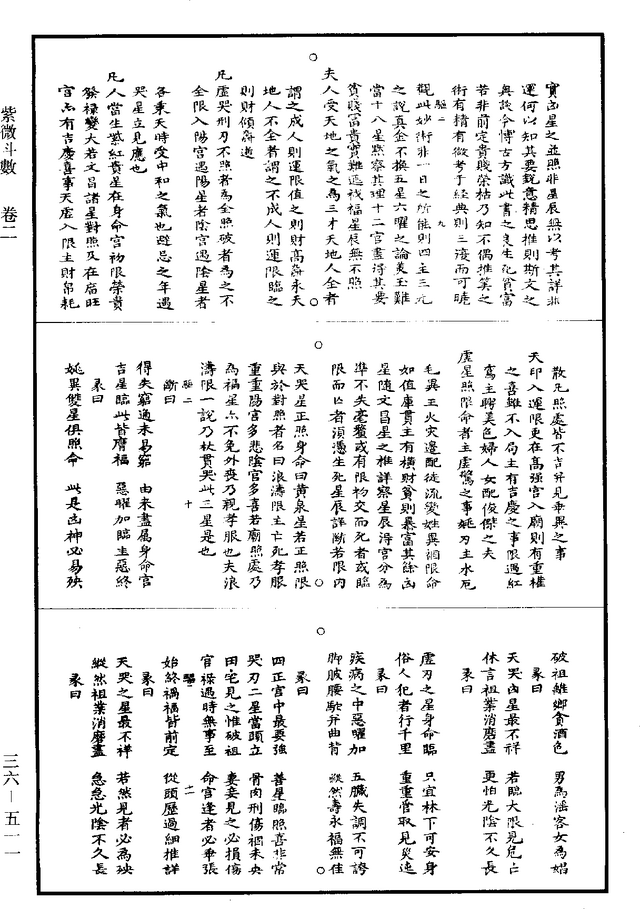 實凶星之並照非星辰無以考其詳非
運何以知其要銳意精思推則斯文之
興談今博古方識此書之良生死貧富
若非前定貴賤榮枯乃知不偶推筭之
術有精有微考于經典則三復而可曉
二 九
觀此妙術非一日之所能則四主三元
之說真金不換五星六曜之論萬玉難
當十八星熟察其理十二宮盡得其要
貧賤富貴實難逃移福星辰無不照
夫人受天地之氣之為三才天地人全者
謂之成人則運限值之則財高壽永天
地人不全者謂之不成人則運限臨之
則財傾壽逝
凡虛哭刑刃不照者為全照破者為之不
全限入陽宮遇陽星者陰宮遇陰星者
各乘天時受中和之氣也避忌之年遇
哭星立見應也
凡人當生紫紅貴星在身命宮初限榮貴
發祿變大若文昌諸星對照及在廟旺
宮亦有吉慶喜事天虛入限主財帛耗
散凡照處皆不吉并見乖異之事
天印入運限更在高強宮入廟則有重權
之喜雖不入局主有吉慶之事限遇紅
鸞主聘美色婦人女配俊傑之夫
虛星照限命者主虛驚之事姚刃主水厄
毛異主火災邊配徒流愛姓異涸限命
如值庫貫主有橫財貧則暴富其餘凶
星隨文昌星之推詳察星辰得宮分為
準不失毫釐或有限初交而死者或臨
限而亡者須憑生死星辰詳斷若限內
天哭星正照身命曰黃泉星若正照限
與於對照者名曰浪濤限主亡死孝服
重重陽宮多悲陰宮多喜若廟照處乃
為福星亦不免外喪乃親孝服也夫浪
濤限一說乃杖貫哭此三星是也
二 十
斷曰
得失窮通未易窮　由來盡屬身命宮
吉星臨此皆膺福　惡曜加臨主惡終
彖曰
姚異雙星俱照命　此是凶神必易殃
破祖離鄉貪酒色　男為淫客女為娼
彖曰
天哭凶星最不祥　若臨大限見危亡
休言祖業消磨盡　更怕光陰不久長
彖曰
虛刃之星身命臨　只宜林下可安身
俗人犯者行千里　重重管取見災迍
彖曰
疾病之中惡曜加　五臟失調不可誇
脚跛腰駝并曲背　縱然壽永福無佳
彖曰
四正宮中最要強　善星臨照喜非常
哭刃二星當頭立　骨肉刑傷禍未央
田宅見之惟破祖　妻妾見之必損傷
官祿遇時無事至　命宮逢者必乖張
二 十一
始終禍福皆前定　從頭歷過細推詳
彖曰
天哭之星最不祥　若然見者必為殃
縱然祖業消磨盡　急急光陰不久長
紫微斗數　卷二
三六—五一一